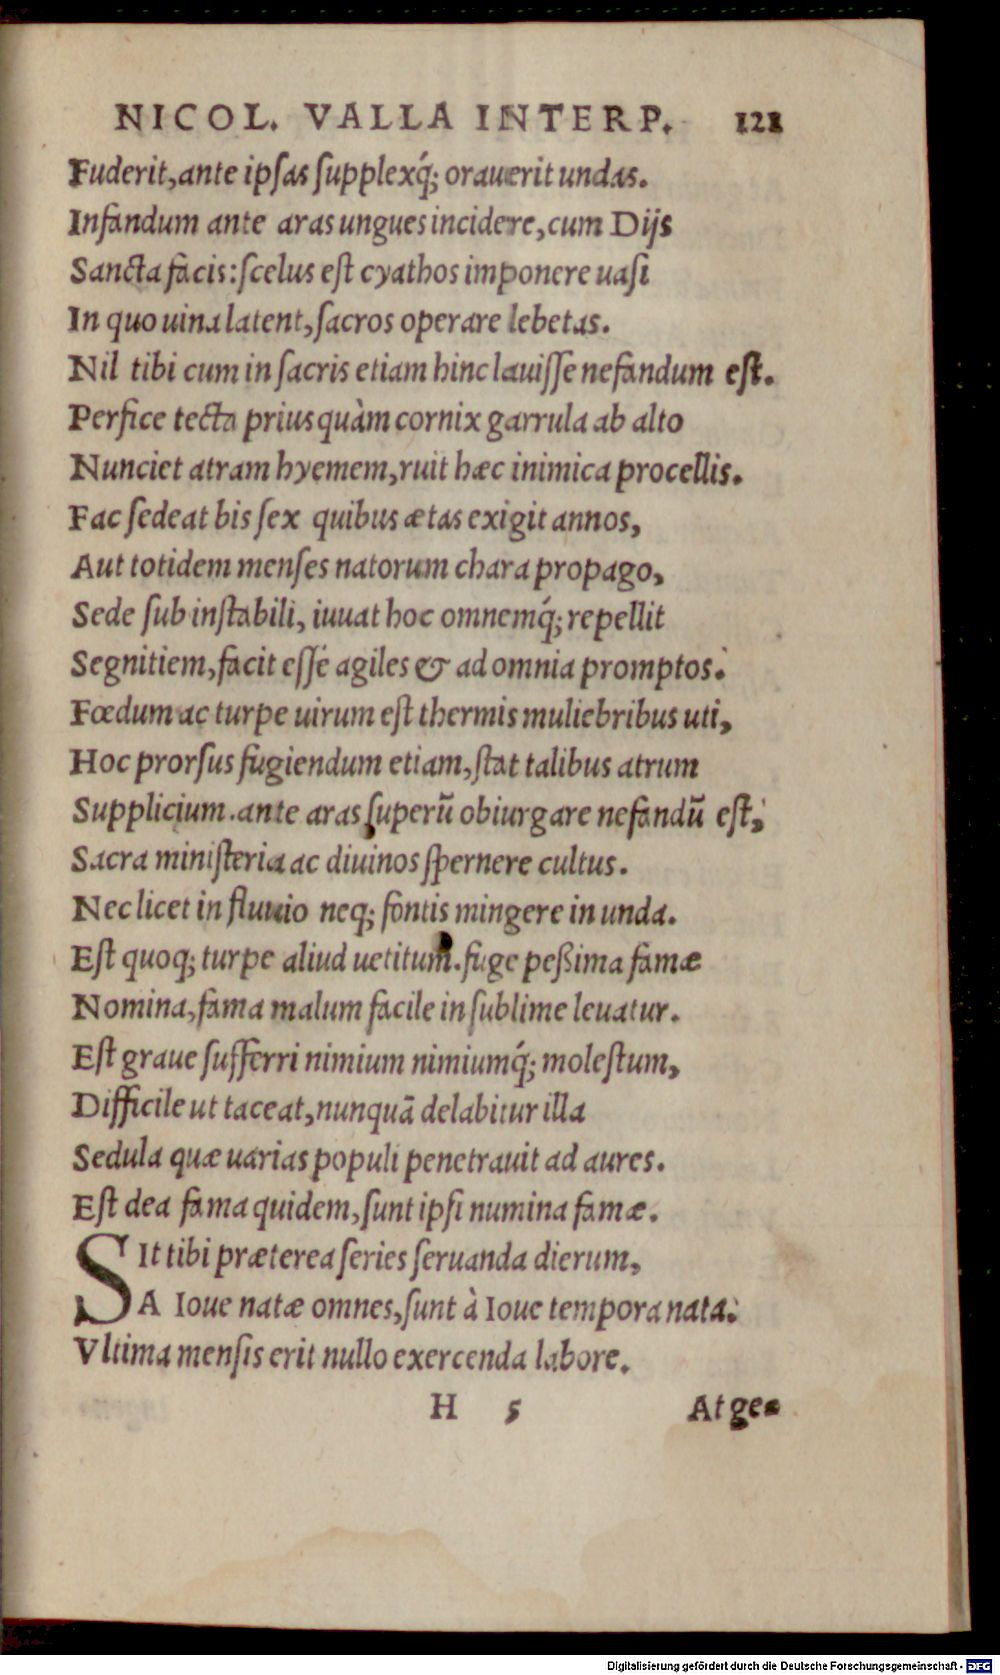 NICOL. VALLA INTERP. 121
Fuderit, ante ipſas ſupplexq́; orauerit undas.
Infandum ante aras ungues incidere, cum Dijs
Sancta facis: ſcelus eſt cyathos imponere uaſi
In quo uina latent, ſacros operare lebetas.
Nil tibi cum in ſacris etiam hinc lauiſſe nefandum eſt.
Perfice tecta prius quàm cornix garrula ab alto
Nunciet atram hyemem, ruit hæc inimica procellis.
Fac ſedeat bis ſex quibus ætas exigit annos,
Aut totidem menſes natorum chara propago,
Sede ſub inſtabili, iuuat hoc omnemq́; repellit
Segnitiem, facit eſſe agiles & ad omnia promptos.
Fœdum ac turpe uirum eſt thermis muliebribus uti,
Hoc prorſus fugiendum etiam, ſtat talibus atrum
Supplicium. ante aras ſuperū obiurgare nefandū eſt,
Sacra miniſteria ac diuinos ſpernere cultus.
Nec licet in fluuio neq; fontis mingere in unda.
Eſt quoq; turpe aliud uetitum. fuge peßima famæ
Nomina, fama malum facile in ſublime leuatur.
Eſt graue ſufferri nimium nimiumq́; moleſtum,
Difficile ut taceat, nunquā delabitur illa
Sedula quæ uarias populi penetrauit ad aures.
Eſt dea fama quidem, ſunt ipſi numina famæ.
SIt tibi præterea ſeries ſeruanda dierum,
A Ioue natæ omnes, ſunt à Ioue tempora nata.
Vltima menſis erit nullo exercenda labore.
H 5 At ge-
Digitalisierung gefördert durch die Deutsche Forschungsgemeinschaft - DFG